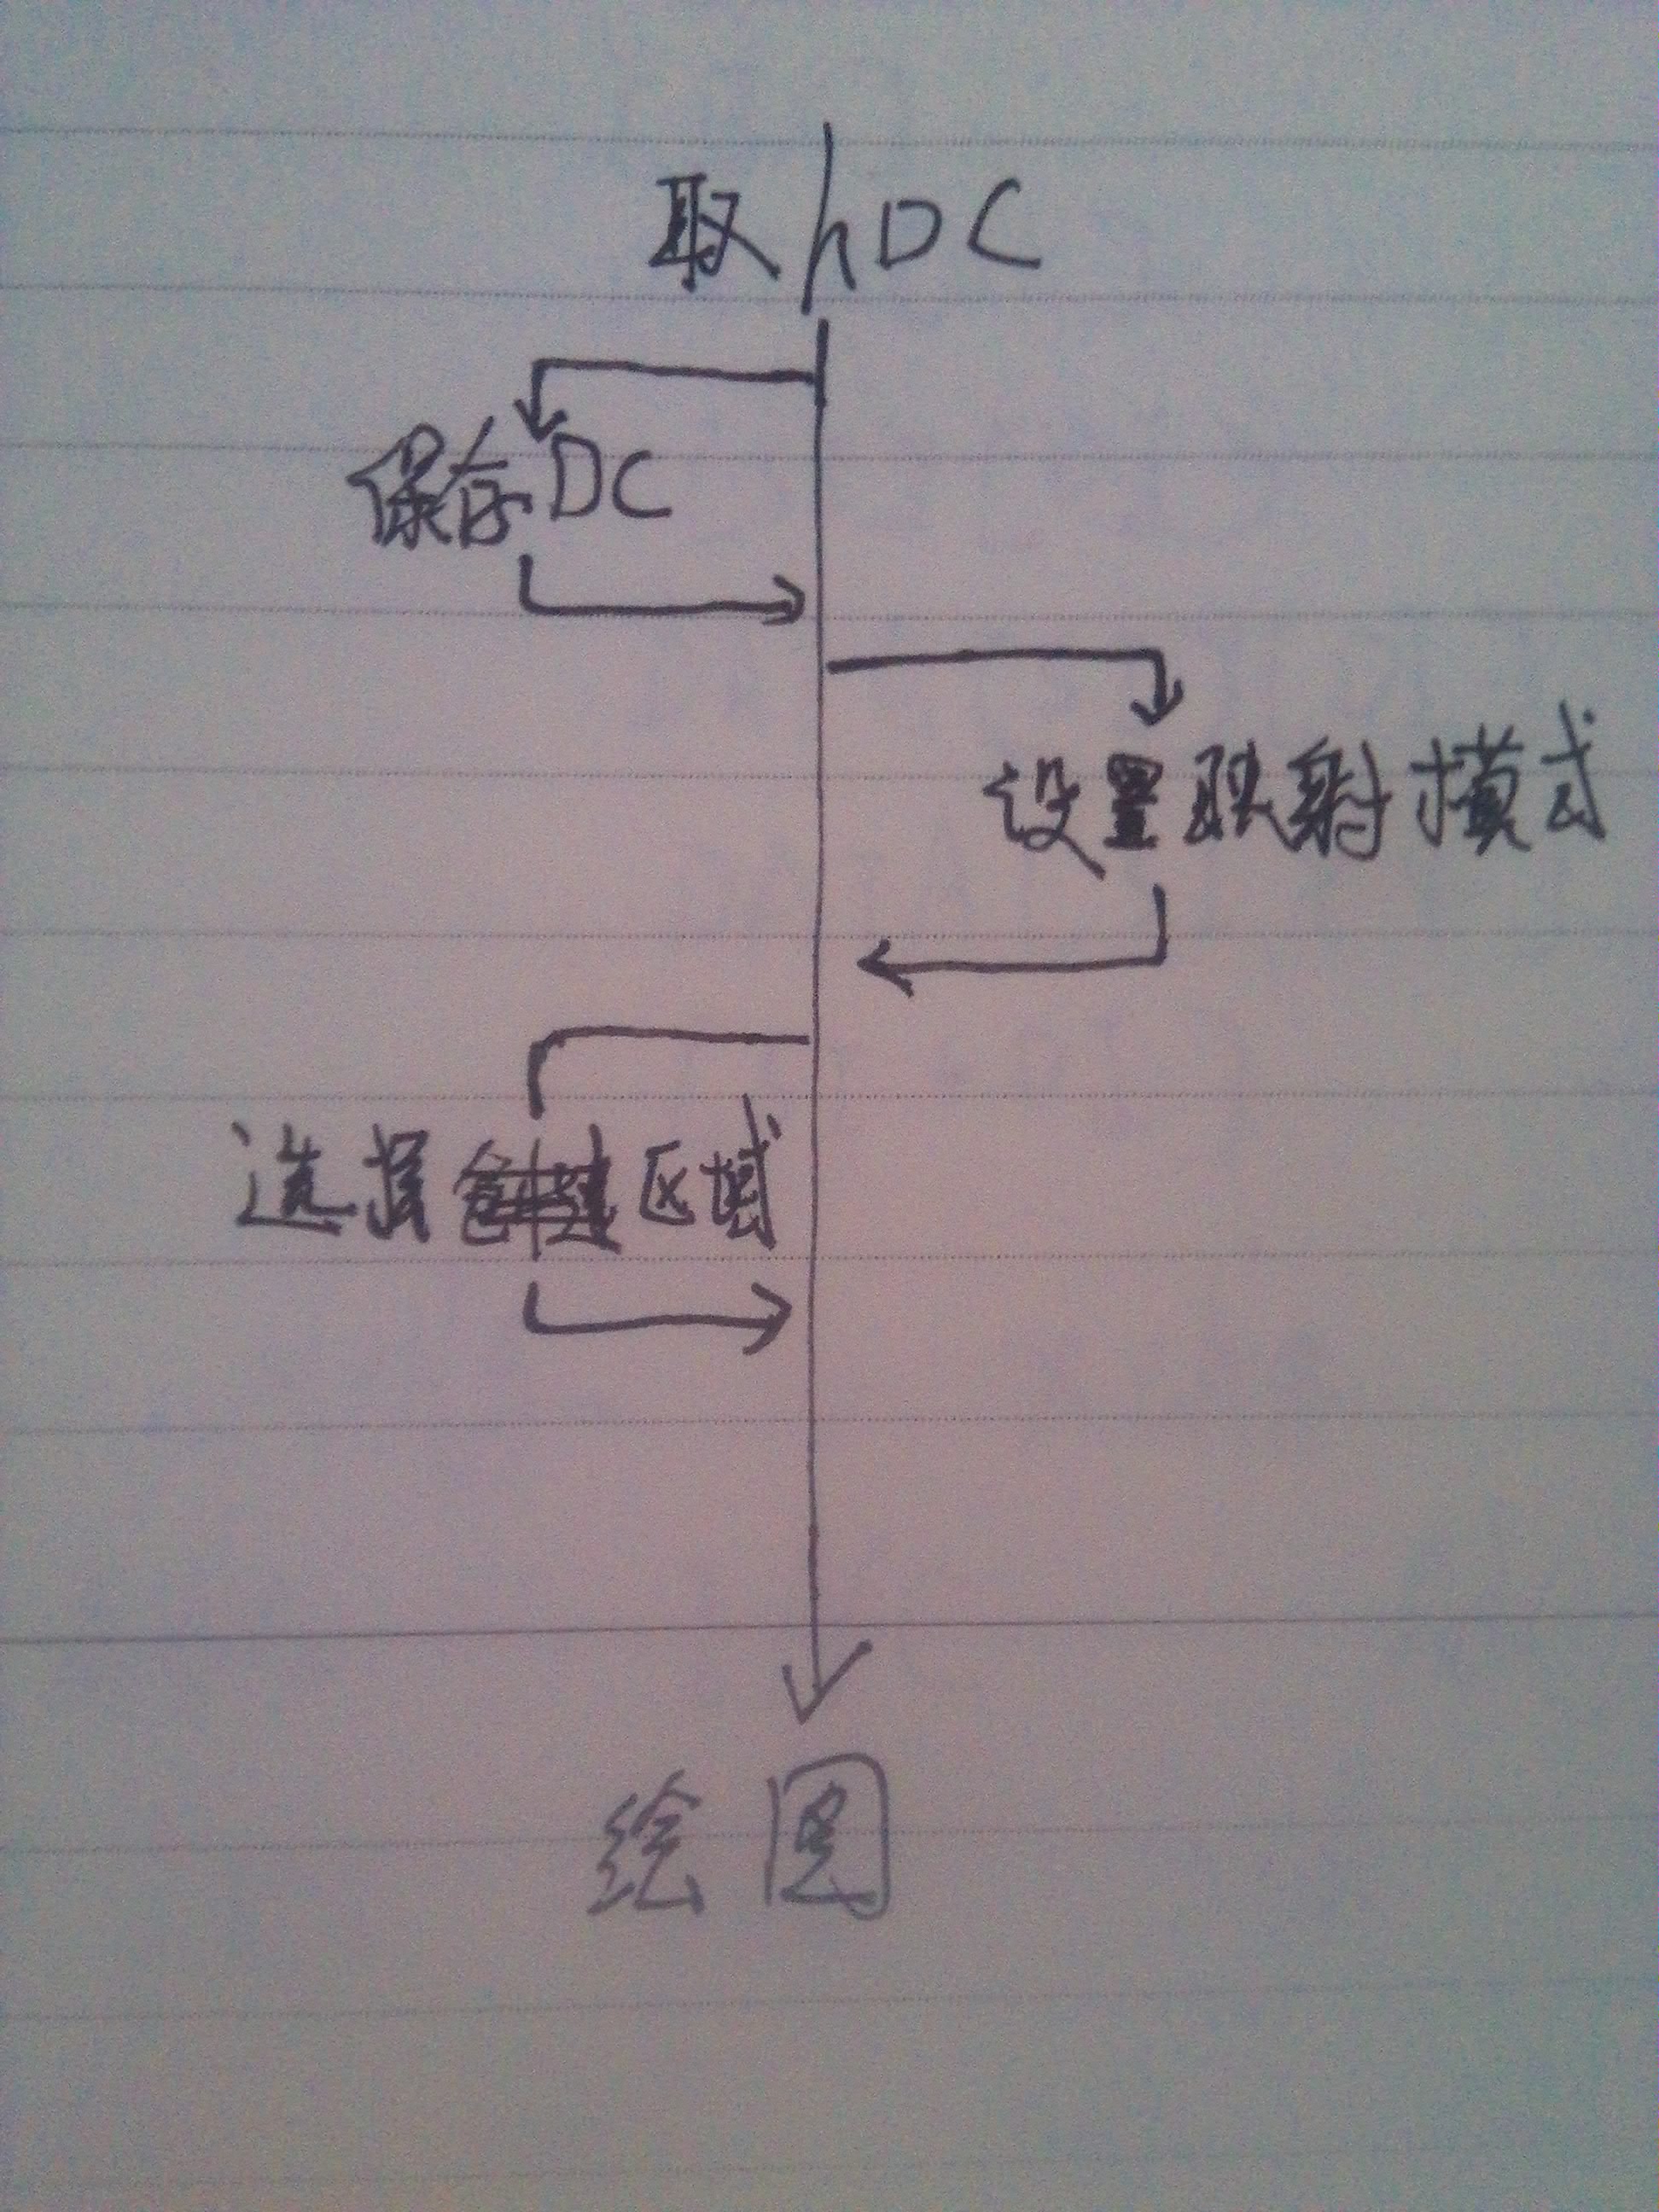 取hDC
保存DC
设置映射模式
选择区域
绘图